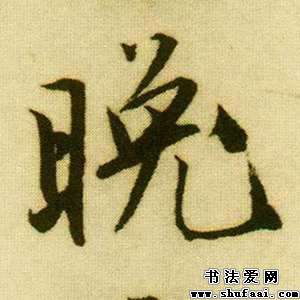 晚
书法爱网
www.shufaai.com